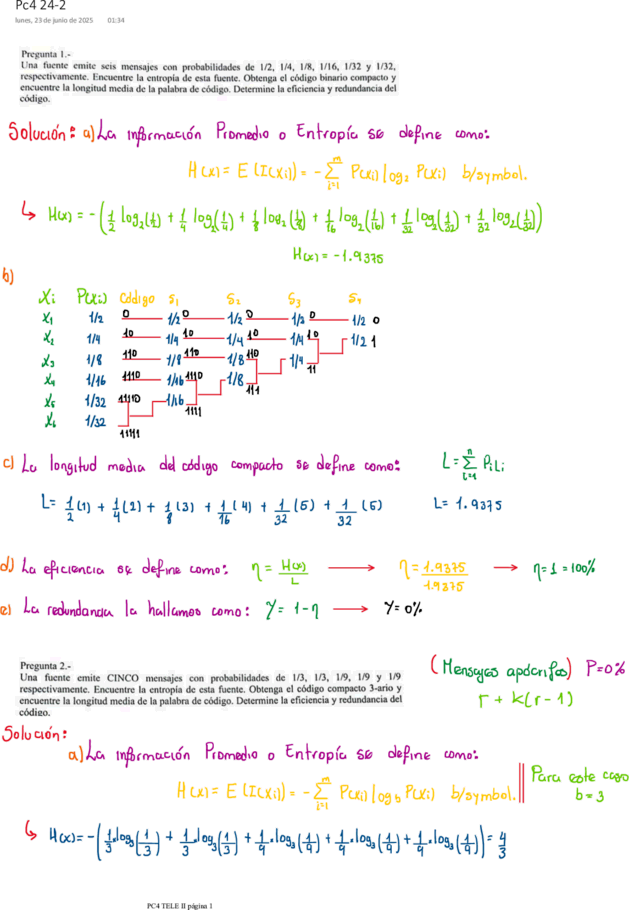 Pc4 24-2
lunes, 23 de junio de 2025 01:34
Pregunta 1.-
Una fuente emite seis mensajes con probabilidades de 1/2, 1/4, 1/8, 1/16, 1/32 y 1/32,
respectivamente. Encuentre la entropía de esta fuente. Obtenga el código binario compacto y
encuentre la longitud media de la palabra de código. Determine la eficiencia y redundancia del
código.
Solución: a) La información Promedio o Entropía se define como:
H(x) = E (I(xi)) = - Σ_{i=1}^{m} P(xi) log₂ P(xi) b/symbol.
↳ H(x) = - (1/2 log₂(1/2) + 1/4 log₂(1/4) + 1/8 log₂(1/8) + 1/16 log₂(1/16) + 1/32 log₂(1/32) + 1/32 log₂(1/32))
H(x) = -1.9375
b)
Xi P(xi) Código S1 S2 S3 S4
X1 1/2 0 1/2 0 1/2 0 1/2 0 1/2 0
X2 1/4 10 1/4 10 1/4 10 1/4 10 1/2 1
X3 1/8 110 1/8 110 1/8 110 1/4 11
X4 1/16 1110 1/16 1110 1/8 111
X5 1/32 11110 1/16 1111
X6 1/32 11111
c) La longitud media del código compacto se define como: L = Σ_{i=1}^{n} PiLi
L = 1/2 (1) + 1/4 (2) + 1/8 (3) + 1/16 (4) + 1/32 (5) + 1/32 (5) L = 1.9375
d) La eficiencia se define como: η = H(x)/L → η = 1.9375/1.9375 → η = 1 = 100%
e) La redundancia la hallamos como: γ = 1 - η → γ = 0%
Pregunta 2.-
Una fuente emite CINCO mensajes con probabilidades de 1/3, 1/3, 1/9, 1/9 y 1/9
respectivamente. Encuentre la entropía de esta fuente. Obtenga el código compacto 3-ario y
encuentre la longitud media de la palabra de código. Determine la eficiencia y redundancia del
código.
(Mensajes apócrifos) P=0%
r + k(r-1)
Solución:
a) La información Promedio o Entropía se define como:
H(x) = E (I(xi)) = - Σ_{i=1}^{m} P(xi) log_b P(xi) b/symbol. || Para este caso
b=3
↳ H(x) = - (1/3 · log₃(1/3) + 1/3 · log₃(1/3) + 1/9 · log₃(1/9) + 1/9 · log₃(1/9) + 1/9 · log₃(1/9)) = 4/3
PC4 TELE II página 1